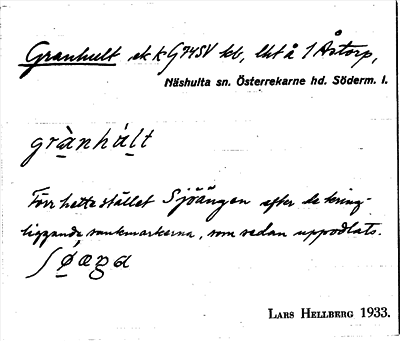 Granhult ek k G74SV kb, lht å 1 Åstorp,
Näshulta sn. Österrekarne hd. Söderm. l.
grànhál̲t
Förr hette stället Sjöängen efter de kring-
liggande sankmarkerna, som sedan uppodlats.
ʃø̀æŋa
LARS HELLBERG 1933.